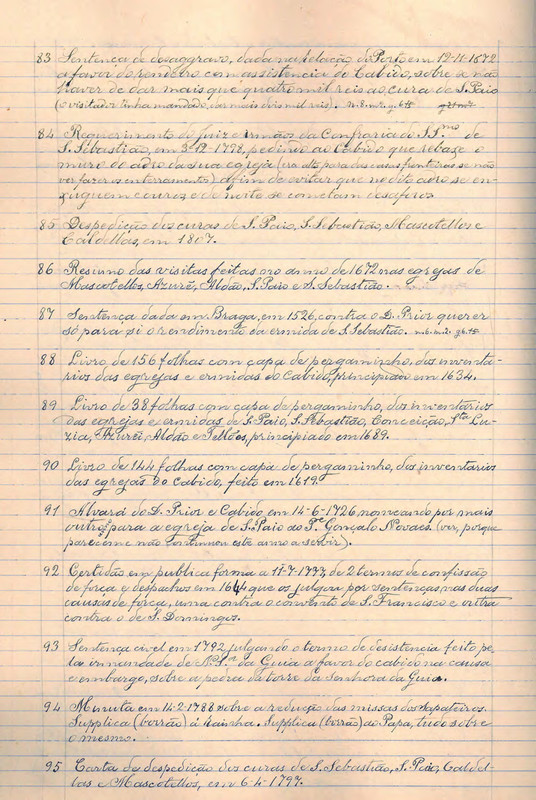 83 Sentença de desaggravo, dada na Relação do Porto em 12-11-1672
a favor do rendeiro com assistencia do Cabido, sobre se não
haver de dar mais que quatro mil reis ao cura de S. Paio
(o visitador tinha mandado dar mais dois mil reis).
84 Requerimento do juiz e irmãos da Confraria do SS.mo de
S. Sebastião, em 3-12-1798, pedindo ao Cabido que rebaxe o
muro do adro da sua egreja (era alto para das casas fronteiras se não
ver fazer enterramentos) afim de evitar que no dito adro se en-
xuguem couros e de noite se cometam desaforos.
85 Despedição dos curas de S. Paio, S. Sebastião, Mascotellos e
Caldellas, em 1807.
86 Resumo das visitas feitas no anno de 1672 nas egrejas de
Mascotellos, Azurei, Aldão, S. Paio e S. Sebastião.
87 Sentença dada em Braga, em 1526, contra o D. Prior querer
só para si o rendimento da ermida de S. Sebastião.
88 Livro de 156 folhas com capa de pergaminho, dos inventa-
rios das egrejas e ermidas do Cabido, principiado em 1634.
89 Livro de 38 folhas com capa de pergaminho, dos inventarios
das egrejas e ermidas de S. Paio, S. Sebastião, Conceição, S.ta Lu-
zia, Azurei, Aldão e Tellões, principiado em 1689.
90 Livro de 144 folhas com capa de pergaminho, dos inventarios
das egrejas do Cabido, feito em 1619.
91 Alvará do D. Prior e Cabido, em 14-6-1726, nomeando por mais
para a egreja de S. Paio ao P.e Gonçalo Novaes. (ver, porque
parece que não continuou este anno a servir).
92 Certidão em publica forma a 11-7-1777, de 2 termos de confissão
de força e despachos em 1644 que os julgou por sentenças nas duas
causas de força, uma contra o convento de S. Francisco e outra
contra o de S. Domingos.
93 Sentença civel em 1792, julgando o termo de desistencia feito pe-
la irmandade de N. S.ra da Guia a favor do cabido na causa
e embargo, sobre a pedra da torre da Senhora da Guia.
94 Minuta em 14-2-1788 sobre a reducção das missas dos Sapateiros.
Supplica (borrão) á Rainha. Supplica (borrão) ao Papa, tudo sobre
o mesmo.
95 Carta de despedição dos curas de S. Sebastião, S. Paio, Caldel-
las e Mascotellos, em 6-4-1797.